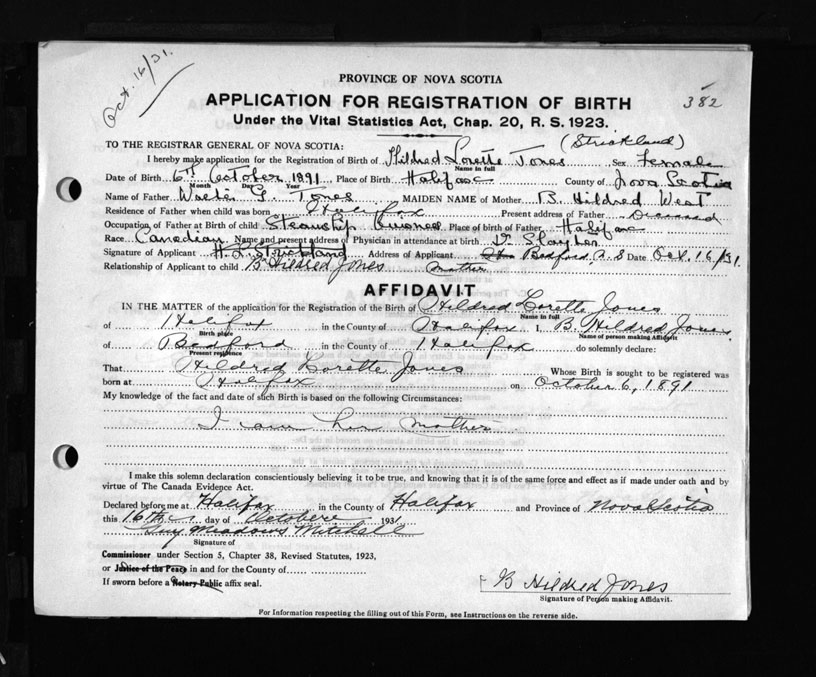 Oct. 16/31.
PROVINCE OF NOVA SCOTIA
APPLICATION FOR REGISTRATION OF BIRTH
382
Under the Vital Statistics Act, Chap. 20, R. S. 1923.
(Strickland)
TO THE REGISTRAR GENERAL OF NOVA SCOTIA:
I hereby make application for the Registration of Birth of Hildred Lorette Jones Sex Female
Name in full
Date of Birth 6th October 1891 Place of Birth Halifax County of Nova Scotia
Month Day Year
Name of Father Walter G. Jones MAIDEN NAME of Mother B. Hildred West
Residence of Father when child was born Halifax Present address of Father Deceased
Occupation of Father at Birth of child Steamship Place of birth of Father Halifax
Race Canadian Name and present address of Physician in attendance at birth Dr
Signature of Applicant H. L. Strickland Address of Applicant Bedford, N. S Date Oct. 16/31.
Relationship of Applicant to child B Hildred Jones mother
AFFIDAVIT
IN THE MATTER of the application of the Registration of the Birth of Hildred Lorette Jones
Name in full
of Halifax in the County of Halifax I, B. Hildred Jones
Birth place Name of person making Affidavit
of Bedford in the County of Halifax do solemnly declare:
Present residence
That Hildred Lorette Jones Whose Birth is sought to be registered was
born at Halifax on October 6, 1891
My knowledge of the fact and date of such Birth is based on the following Circumstances:
I am her mother
I make this solemn declaration conscientiously believing it to be true, and knowing that it is of the same force and effect as if made under oath and by
virtue of The Canada Evidence Act.
Declared before me at Halifax in the County of Halifax and Province of Nova Scotia
this 16th day of October 1931
Guy Meadows Mitchell
Signature of
Commissioner under Section 5, Chapter 38, Revised Statutes, 1923,
or Justice of the Peace in and for the County of
If sworn before a Notary Public affix seal.
B Hildred Jones
Signature of Person making Affidavit.
For Information respecting the filling out of this Form, see Instructions on the reverse side.